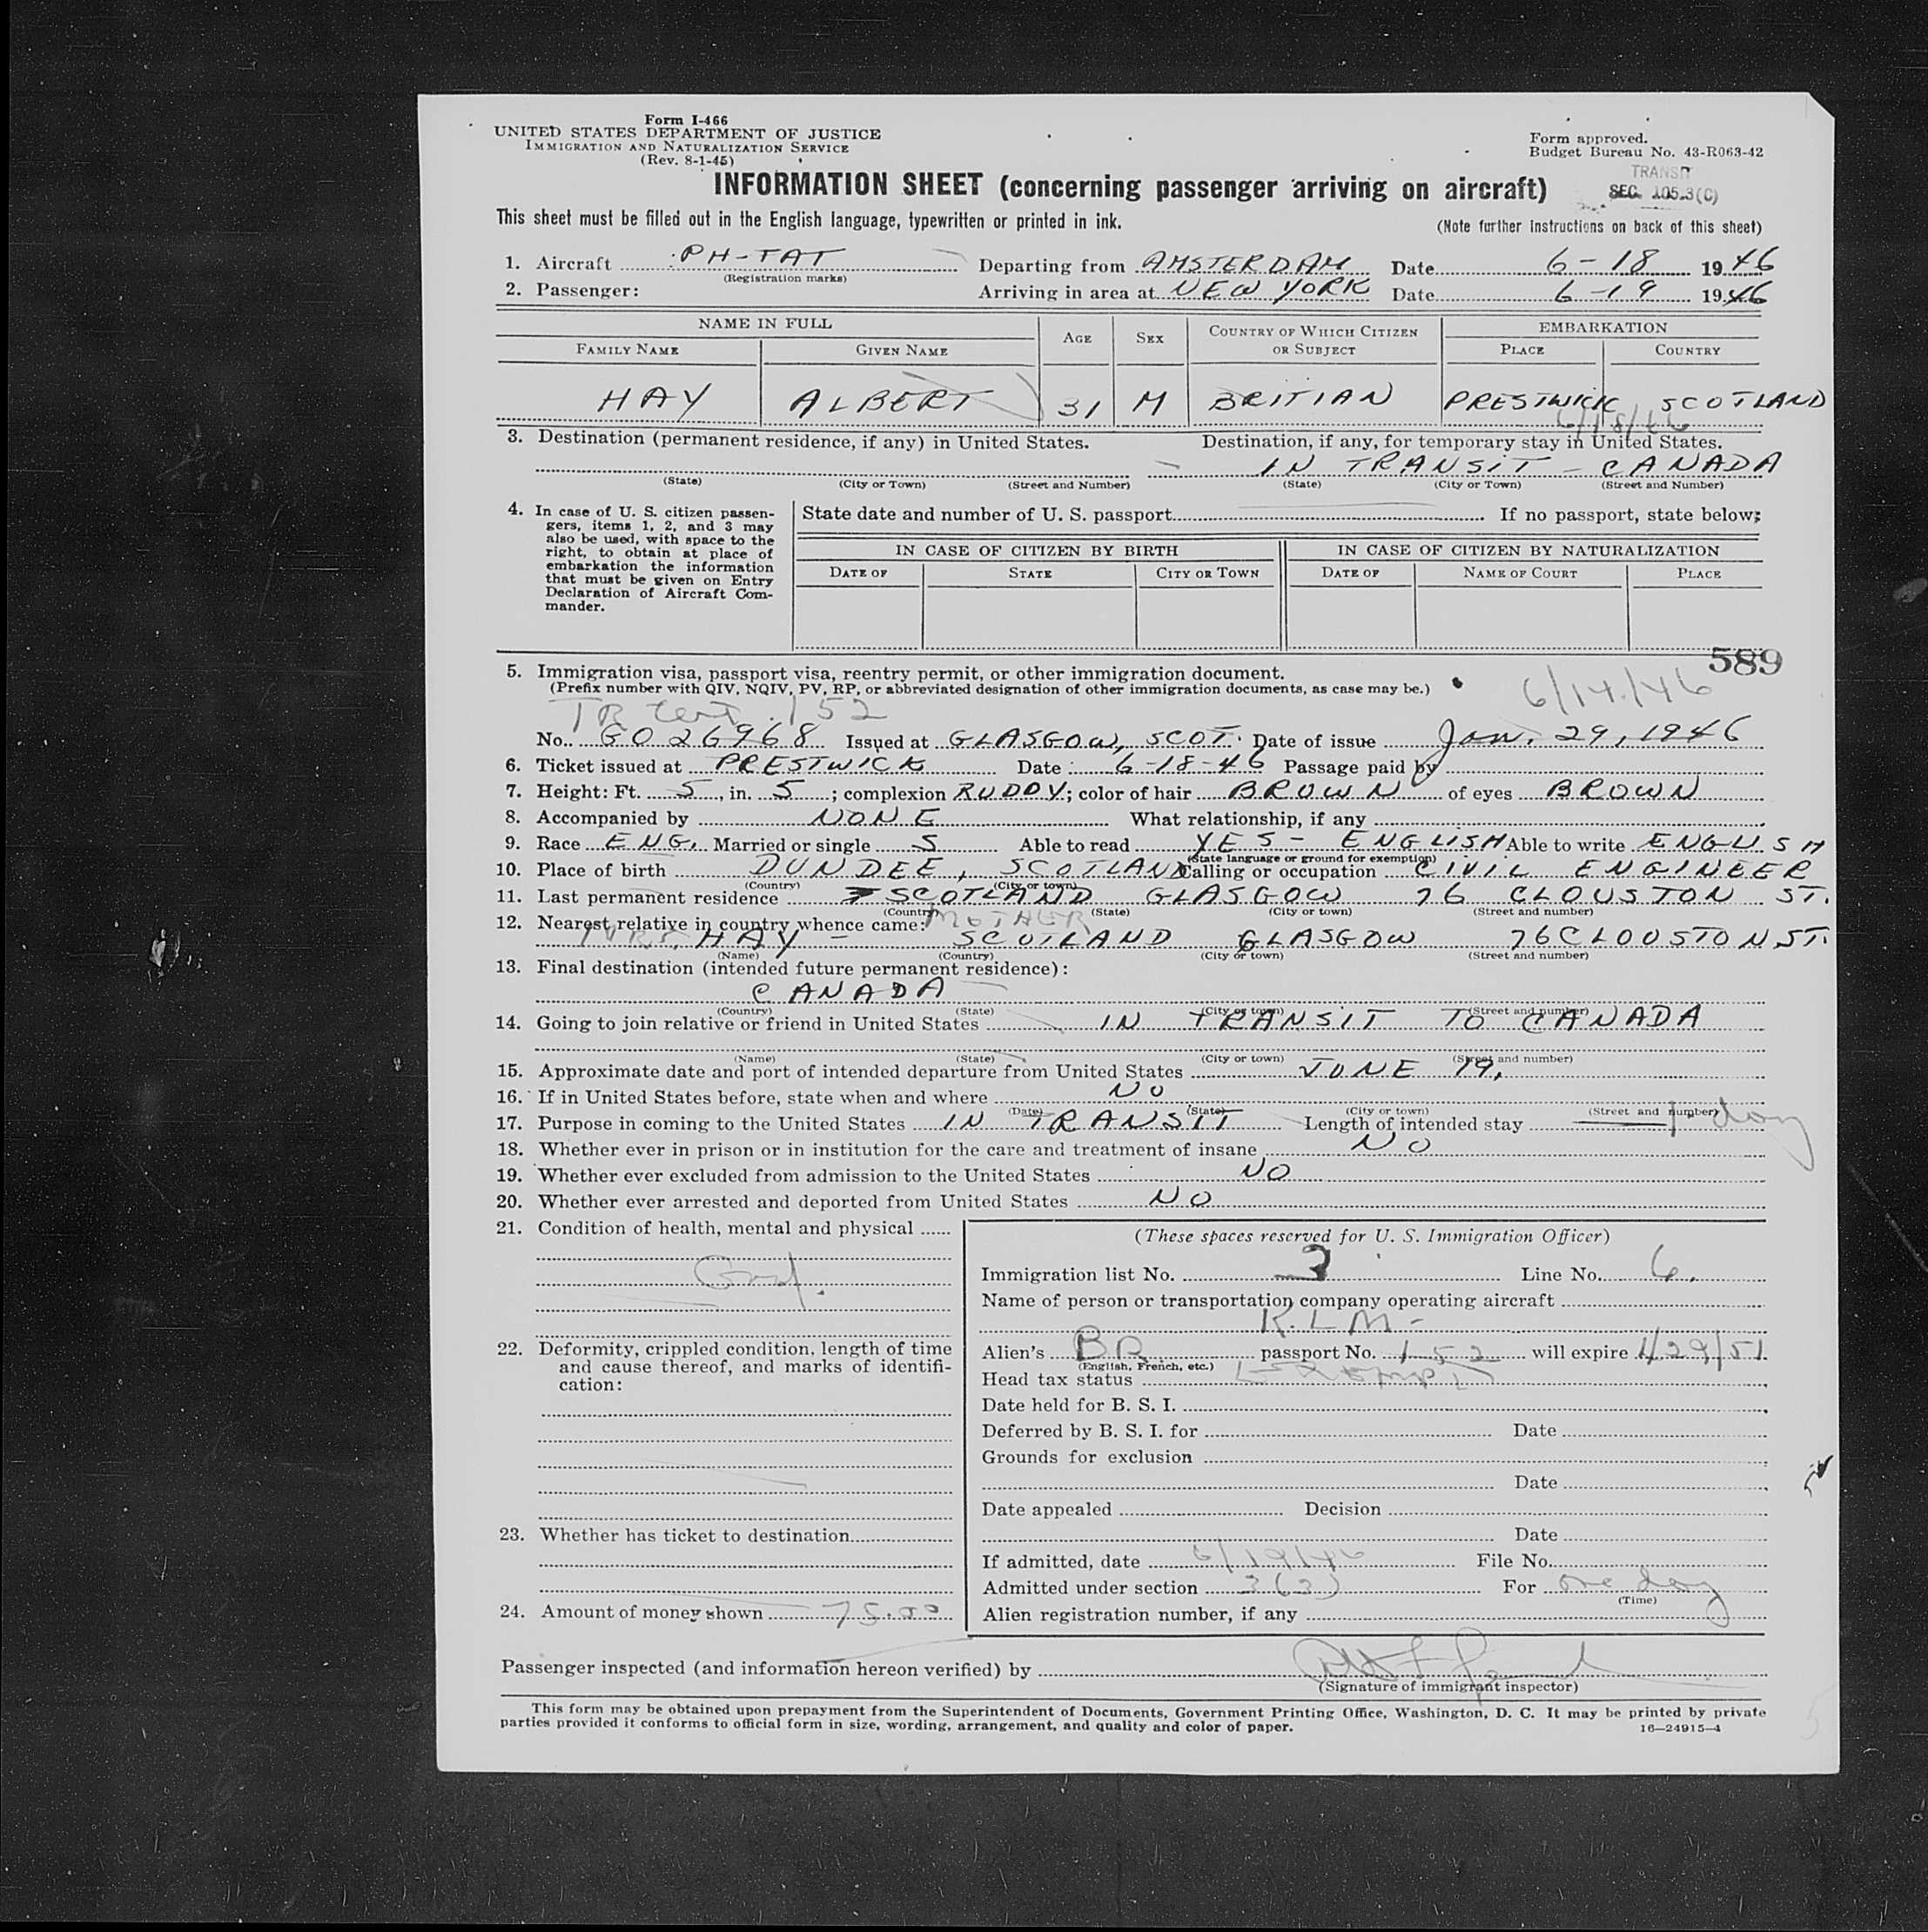 Form I-466
UNITED STATES DEPARTMENT OF JUSTICE
IMMIGRATION AND NATURALIZATION SERVICE
(Rev. 8-1-45)
Form approved.
Budget Bureau No. 43-R063-42
TRANSIT
SEC. 105.3(C)
INFORMATION SHEET (concerning passenger arriving on aircraft)
This sheet must be filled out in the English language, typewritten or printed in ink.
(Note further instructions on back of this sheet)
1. Aircraft PH-TAT Departing from AMSTERDAM Date 6-18 1946
(Registration marks)
2. Passenger: Arriving in area at NEW YORK Date 6-19 1946
NAME IN FULL AGE SEX COUNTRY OF WHICH CITIZEN OR SUBJECT EMBARKATION
FAMILY NAME GIVEN NAME PLACE COUNTRY
HAY ALBERT 31 M BRITIAN PRESTWICK SCOTLAND
6/18/46
3. Destination (permanent residence, if any) in United States. Destination, if any, for temporary stay in United States.
IN TRANSIT - CANADA
(State) (City or Town) (Street and Number) (State) (City or Town) (Street and Number)
4. In case of U. S. citizen passen-
gers, items 1, 2, and 3 may
also be used, with space to the
right, to obtain at place of
embarkation the information
that must be given on Entry
Declaration of Aircraft Com-
mander.
State date and number of U. S. passport If no passport, state below;
IN CASE OF CITIZEN BY BIRTH IN CASE OF CITIZEN BY NATURALIZATION
DATE OF STATE CITY OR TOWN DATE OF NAME OF COURT PLACE
589
5. Immigration visa, passport visa, reentry permit, or other immigration document.
(Prefix number with QIV, NQIV, PV, RP, or abbreviated designation of other immigration documents, as case may be.)
TR Cert. 152 6/14/46
No. GO 26968 Issued at GLASGOW, SCOT. Date of issue Jan. 29, 1946
6. Ticket issued at PRESTWICK Date 6-18-46 Passage paid by
7. Height: Ft. 5, in. 5; complexion RUDDY; color of hair BROWN of eyes BROWN
8. Accompanied by NONE What relationship, if any
9. Race ENG. Married or single S Able to read YES - ENGLISH Able to write ENGLISH
(State language or ground for exemption)
10. Place of birth DUNDEE, SCOTLAND Calling or occupation CIVIL ENGINEER
(Country) (City or town)
11. Last permanent residence SCOTLAND GLASGOW 76 CLOUSTON ST.
(Country) (State) (City or town) (Street and number)
12. Nearest relative in country whence came: MOTHER
MRS. HAY - SCOTLAND GLASGOW 76 CLOUSTON ST.
(Name) (Country) (City or town) (Street and number)
13. Final destination (intended future permanent residence):
CANADA
(Country) (State) (City or town) (Street and number)
14. Going to join relative or friend in United States IN TRANSIT TO CANADA
(Name) (State) (City or town) (Street and number)
15. Approximate date and port of intended departure from United States JUNE 19,
16. If in United States before, state when and where NO
(Date) (State) (City or town) (Street and number)
17. Purpose in coming to the United States IN TRANSIT Length of intended stay 1 day
18. Whether ever in prison or in institution for the care and treatment of insane NO
19. Whether ever excluded from admission to the United States NO
20. Whether ever arrested and deported from United States NO
21. Condition of health, mental and physical
Good.
22. Deformity, crippled condition, length of time
and cause thereof, and marks of identifi-
cation:
23. Whether has ticket to destination
24. Amount of money shown 75.00
(These spaces reserved for U. S. Immigration Officer)
Immigration list No. 3 Line No. 6.
Name of person or transportation company operating aircraft
K.L.M-
Alien's BR passport No. 152 will expire 1/29/51
(English, French, etc.)
Head tax status Exempt
Date held for B. S. I.
Deferred by B. S. I. for Date
Grounds for exclusion
Date
Date appealed Decision
Date
If admitted, date 6/19/46 File No.
Admitted under section 3(3) For one day
(Time)
Alien registration number, if any
Passenger inspected (and information hereon verified) by
(Signature of immigrant inspector)
This form may be obtained upon prepayment from the Superintendent of Documents, Government Printing Office, Washington, D. C. It may be printed by private
parties provided it conforms to official form in size, wording, arrangement, and quality and color of paper.
16—24915-4